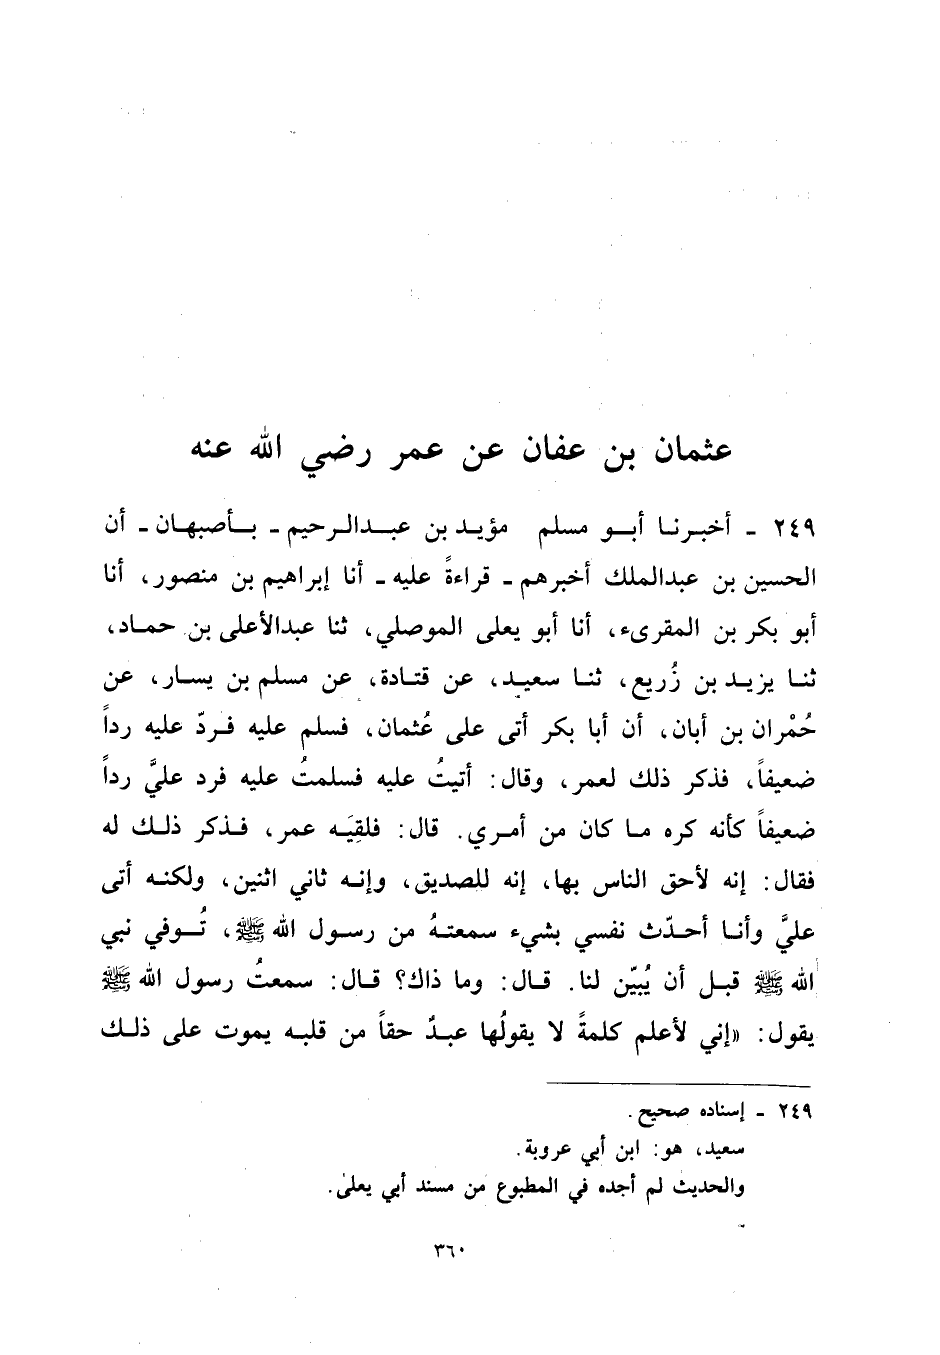 عثمان بن عفان عن عمر رضي الله عنه
٢٤٩ - أخبرنا أبو مسلم مؤيد بن عبدالرحيم - بأصبهان - أن
الحسين بن عبدالملك أخبرهم - قراءةً عليه - أنا إبراهيم بن منصور، أنا
أبو بكر بن المقرىء، أنا أبو يعلى الموصلي، ثنا عبدالأعلى بن حماد،
ثنا يزيد بن زُريع، ثنا سعيد، عن قتادة، عن مسلم بن يسار، عن
حُمْران بن أبان، أن أبا بكر أتى على عُثمان، فسلم عليه فردّ عليه رداً
ضعيفاً، فذكر ذلك لعمر، وقال: أتيتُ عليه فسلمتُ عليه فرد عليَّ رداً
ضعيفاً كأنه كره ما كان من أمري. قال: فلقِيَه عمر، فذكر ذلك له
فقال: إنه لأحق الناس بها، إنه للصديق، وإنه ثاني اثنين، ولكنه أتى
عليَّ وأنا أحدّث نفسي بشيء سمعتهُ من رسول الله ﷺ، تُوفي نبي
الله ﷺ قبل أن يُبيّن لنا. قال: وما ذاك؟ قال: سمعتُ رسول الله ﷺ
يقول: «إني لأعلم كلمةً لا يقولُها عبدٌ حقاً من قلبه يموت على ذلك
٢٤٩ - إسناده صحيح.
سعيد، هو: ابن أبي عروبة.
والحديث لم أجده في المطبوع من مسند أبي يعلىٰ.
٣٦٠